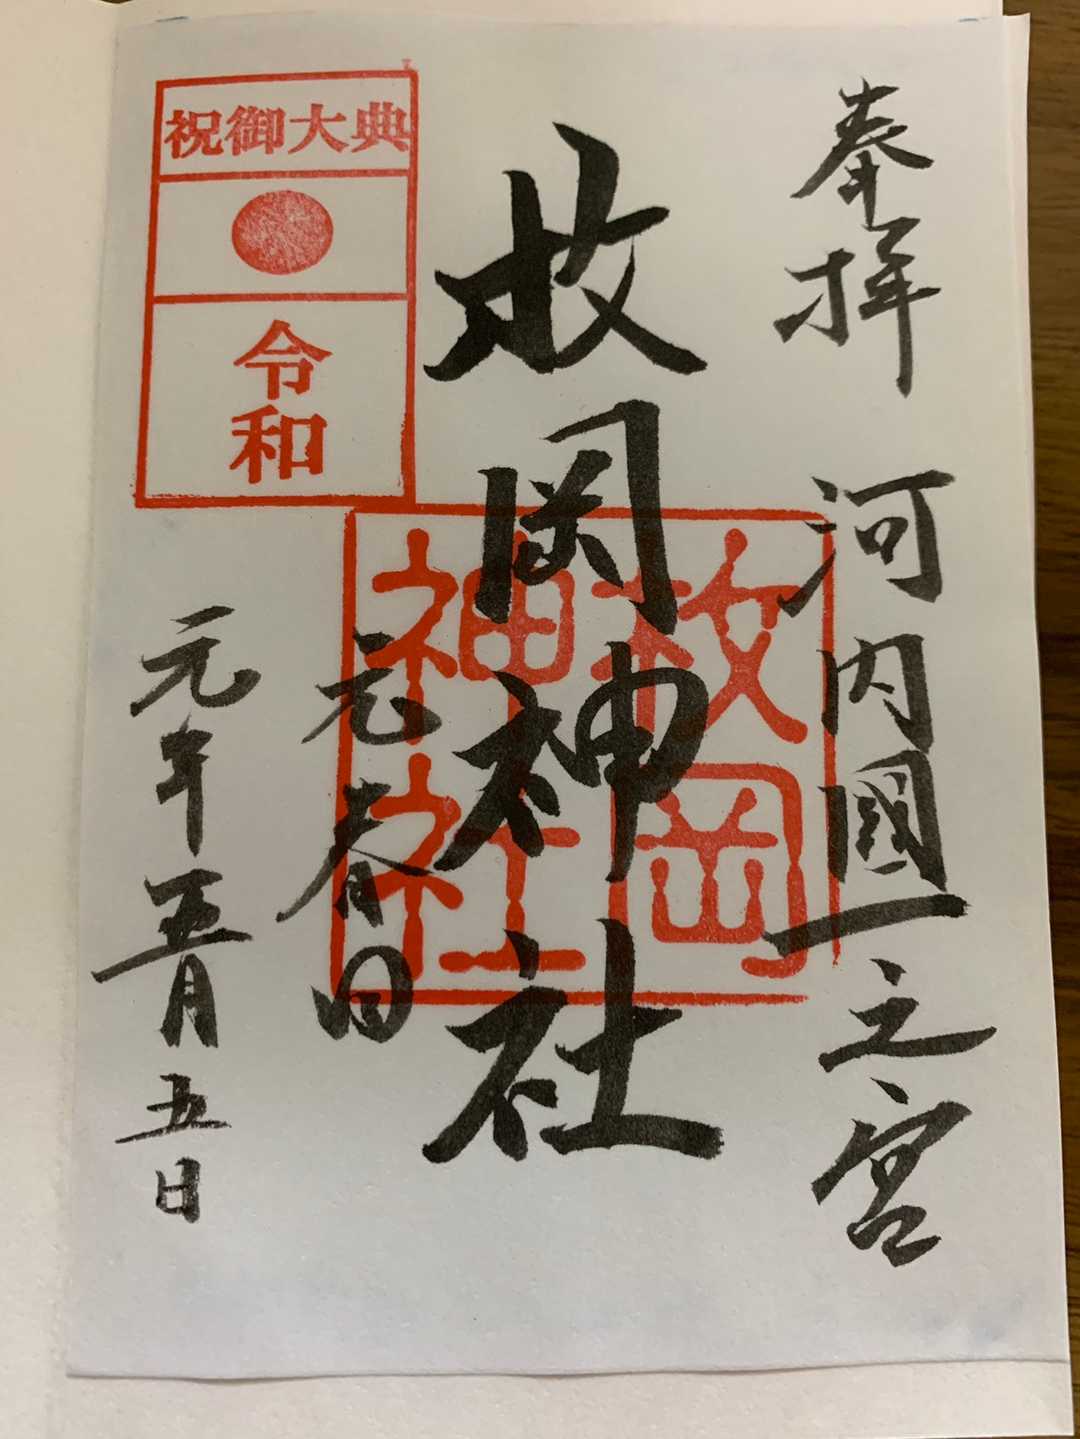 奉拝 河内國一之宮
枚岡神社
元春日
祝御大典
令和
元年五月五日
枚岡
神社